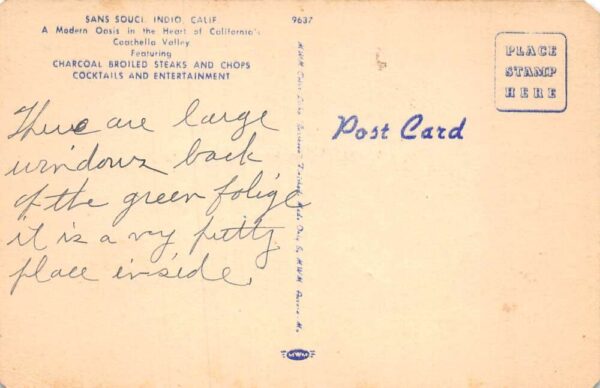 SANS SOUCI, INDIO, CALIF.
A Modern Oasis in the Heart of California's
Coachella Valley
Featuring
CHARCOAL BROILED STEAKS AND CHOPS
COCKTAILS AND ENTERTAINMENT
There are large
windows back
of the green folige
it is a vry pretty
place inside.
9637
MWM Color-Litho
Made Only by MWM
Mo.
Post Card
PLACE
STAMP
HERE
MWM